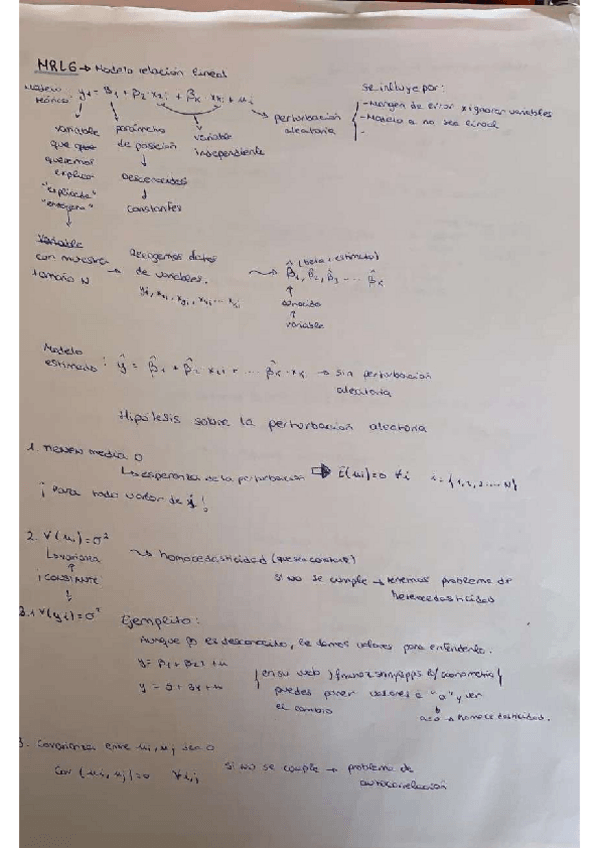 MRLG → Modelo relación lineal
Modelo teórico: yi = β1 + β2 · x2i + βk xki + ui → perturbación aleatoria
se influye por:
- Margen de error x ignorar variables
- Modelo a no ser lineal
-
variable que queremos explicar "explicada" "endógena"
parámetro de posición
↓
Desconocidos
↓
constantes
variable independiente
variable
con muestra tamaño N → Recogemos datos de variables.
^ (beta estimado)
β̂1, β̂2, β̂3 .... β̂k
↑
conocido
↑
variable
Modelo estimado: ŷ = β̂1 + β̂2 x2i + ... β̂k · xk → sin perturbación aleatoria
Hipótesis sobre la perturbación aleatoria
1. media 0
esperanza de la perturbación ⇒ E(ui)=0 ∀i i = {1, 2, ... N}
¡Para todo valor de i!
2. V(ui)=σ²
varianza
¡CONSTANTE!
homocedasticidad
si no se cumple → tenemos problema de heterocedasticidad
3.1 V(yi)=σ²
Ejemplito:
Aunque β es desconocido, le damos valores para entenderlo.
y = β1 + β2x + u
y = 2 + 3x + u
puedes poner valores a "σ" y ver el cambio
homocedasticidad.
3. Covarianza entre ui, uj sea 0
Cov (ui, uj)=0 ∀i,j
si no se cumple → problema de autocorrelación